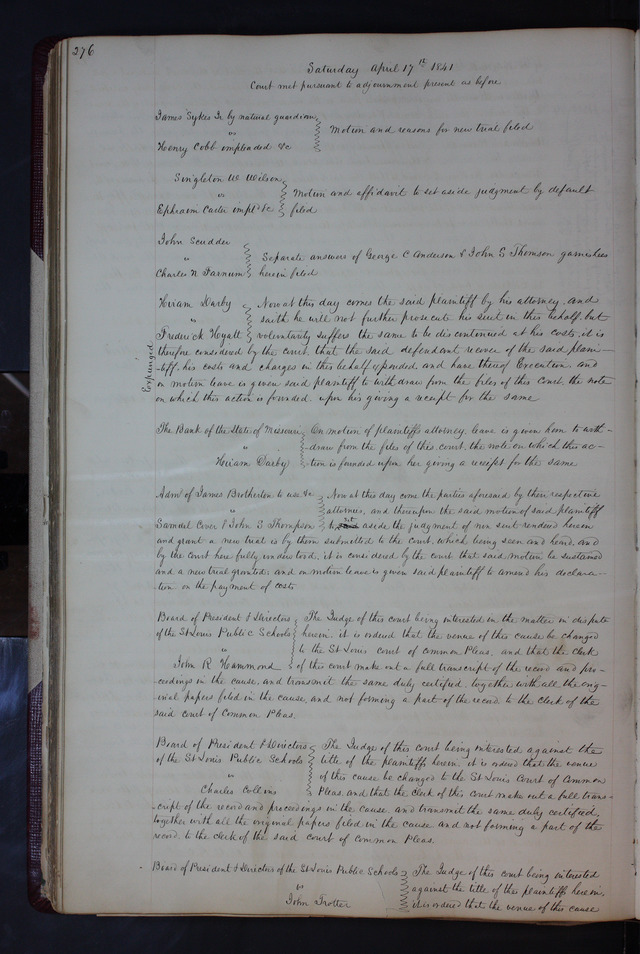 276
Saturday April 17th 1841
Court met pursuant to adjournment present as before
James Sykes Jr by natural guardian
vs Motion and reasons for new trial filed
Henry Cobb impleaded &c
Singleton W Wilson
vs Motion and affidavit to set aside judgment by default
Ephraim Carter impl &c filed
John Scudder
vs Separate answers of George C Anderson & John S Thomson garnishees
Charles N Farnum herein filed
Hiram Darby Now at this day comes the said plaintiff by his attorney, and
vs saith he will not further prosecute his suit in this behalf, but
Frederick Hyatt voluntarily suffers the same to be discontinued at his costs, it is
therefore considered by the court that the said defendant recover of the said plain-
-tiff, his costs and charges in this behalf expended, and have thereof Execution, and
on motion leave is given said plaintiff to withdraw from the files of this court, the note
on which this action is founded, upon his giving a receipt for the same
Expunged
The Bank of the State of Missouri On motion of plaintiffs attorney, leave is given him to with-
vs -draw from the files of this court, the note on which this ac-
Hiram Darby -tion is founded upon her giving a receipt for the same
Admr of James Brotherton to use &c Now at this day come the parties aforesaid by their respective
vs attornies, and thereupon the said motion of said plaintiff
Samuel Cover & John S Thompson to set aside the judgment of non suit rendered herein
and grant a new trial is by them submitted to the court, which being seen and heard, and
by the court here fully understood, it is considered by the court that said motion be sustained
and a new trial granted; and on motion leave is given said plaintiff to amend his declara-
-tion on the payment of costs
Board of President & Directors The Judge of this court being interested in the matter in dispute
of the St Louis Public Schools herein, it is ordered that the venue of this cause be changed
vs to the St Louis court of common Pleas, and that the clerk
John R Hammond of this court make out a full transcript of the record and pro-
-ceedings in the cause, and transmit the same duly certified, together with all the orig-
-inal papers filed in the cause, and not forming a part of the record to the clerk of the
said court of Common Pleas.
Board of President & Directors The Judge of this court being interested against the
of the St Louis Public Schools title of the plaintiffs herein, it is ordered that the venue
vs of this cause be changed to the St Louis Court of Common
Charles Collins Pleas, and that the clerk of this court make out a full trans-
-cript of the record and proceedings in the cause, and transmit the same duly certified,
together with all the original papers filed in the cause and not forming a part of the
record, to the clerk of the said court of Common Pleas.
Board of President & Directors of the St Louis Public Schools The Judge of this court being interested
vs against the title of the plaintiffs herein,
John Trotter it is ordered that the venue of this cause